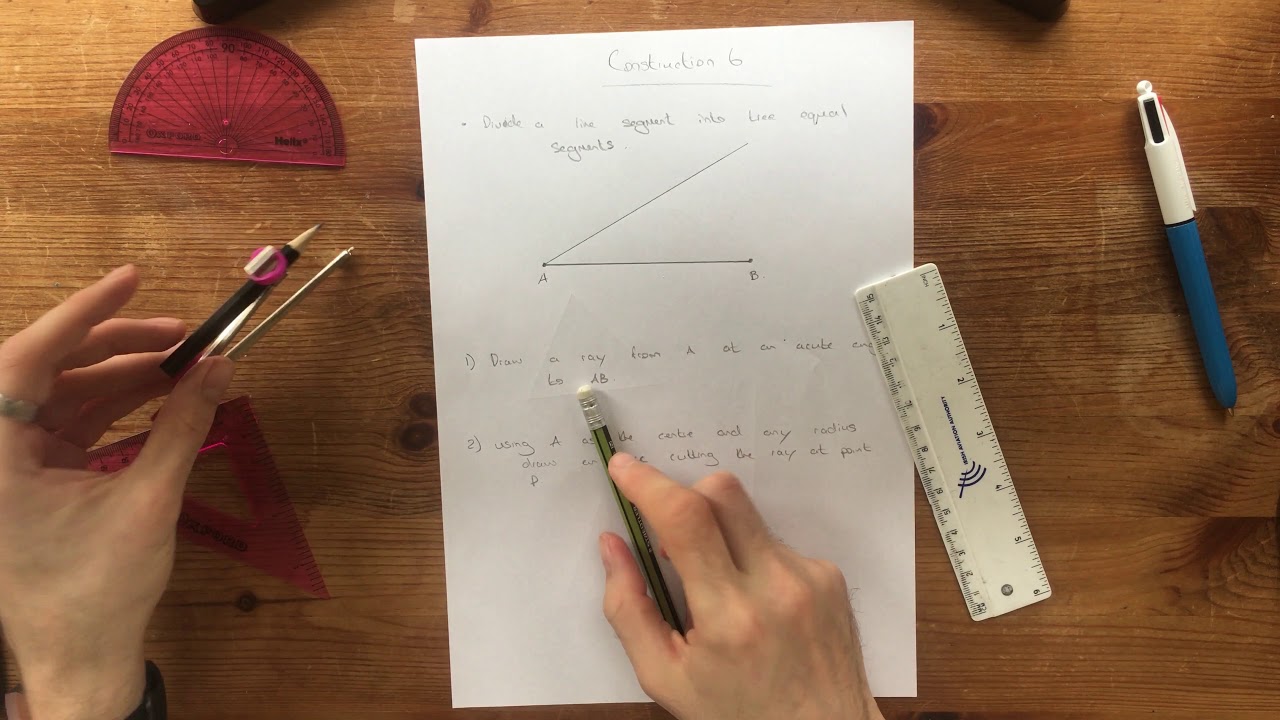 Construction 6
• Divide a line segment into tree equal
segments.
A
B.
1) Draw a ray from A at an acute
to AB
2) using A as the centre and any radius
draw an cutting the ray at point
P
90
Helix
INCH
IRISH AVIATION AUTHORITY
1
2
3
4
5
6